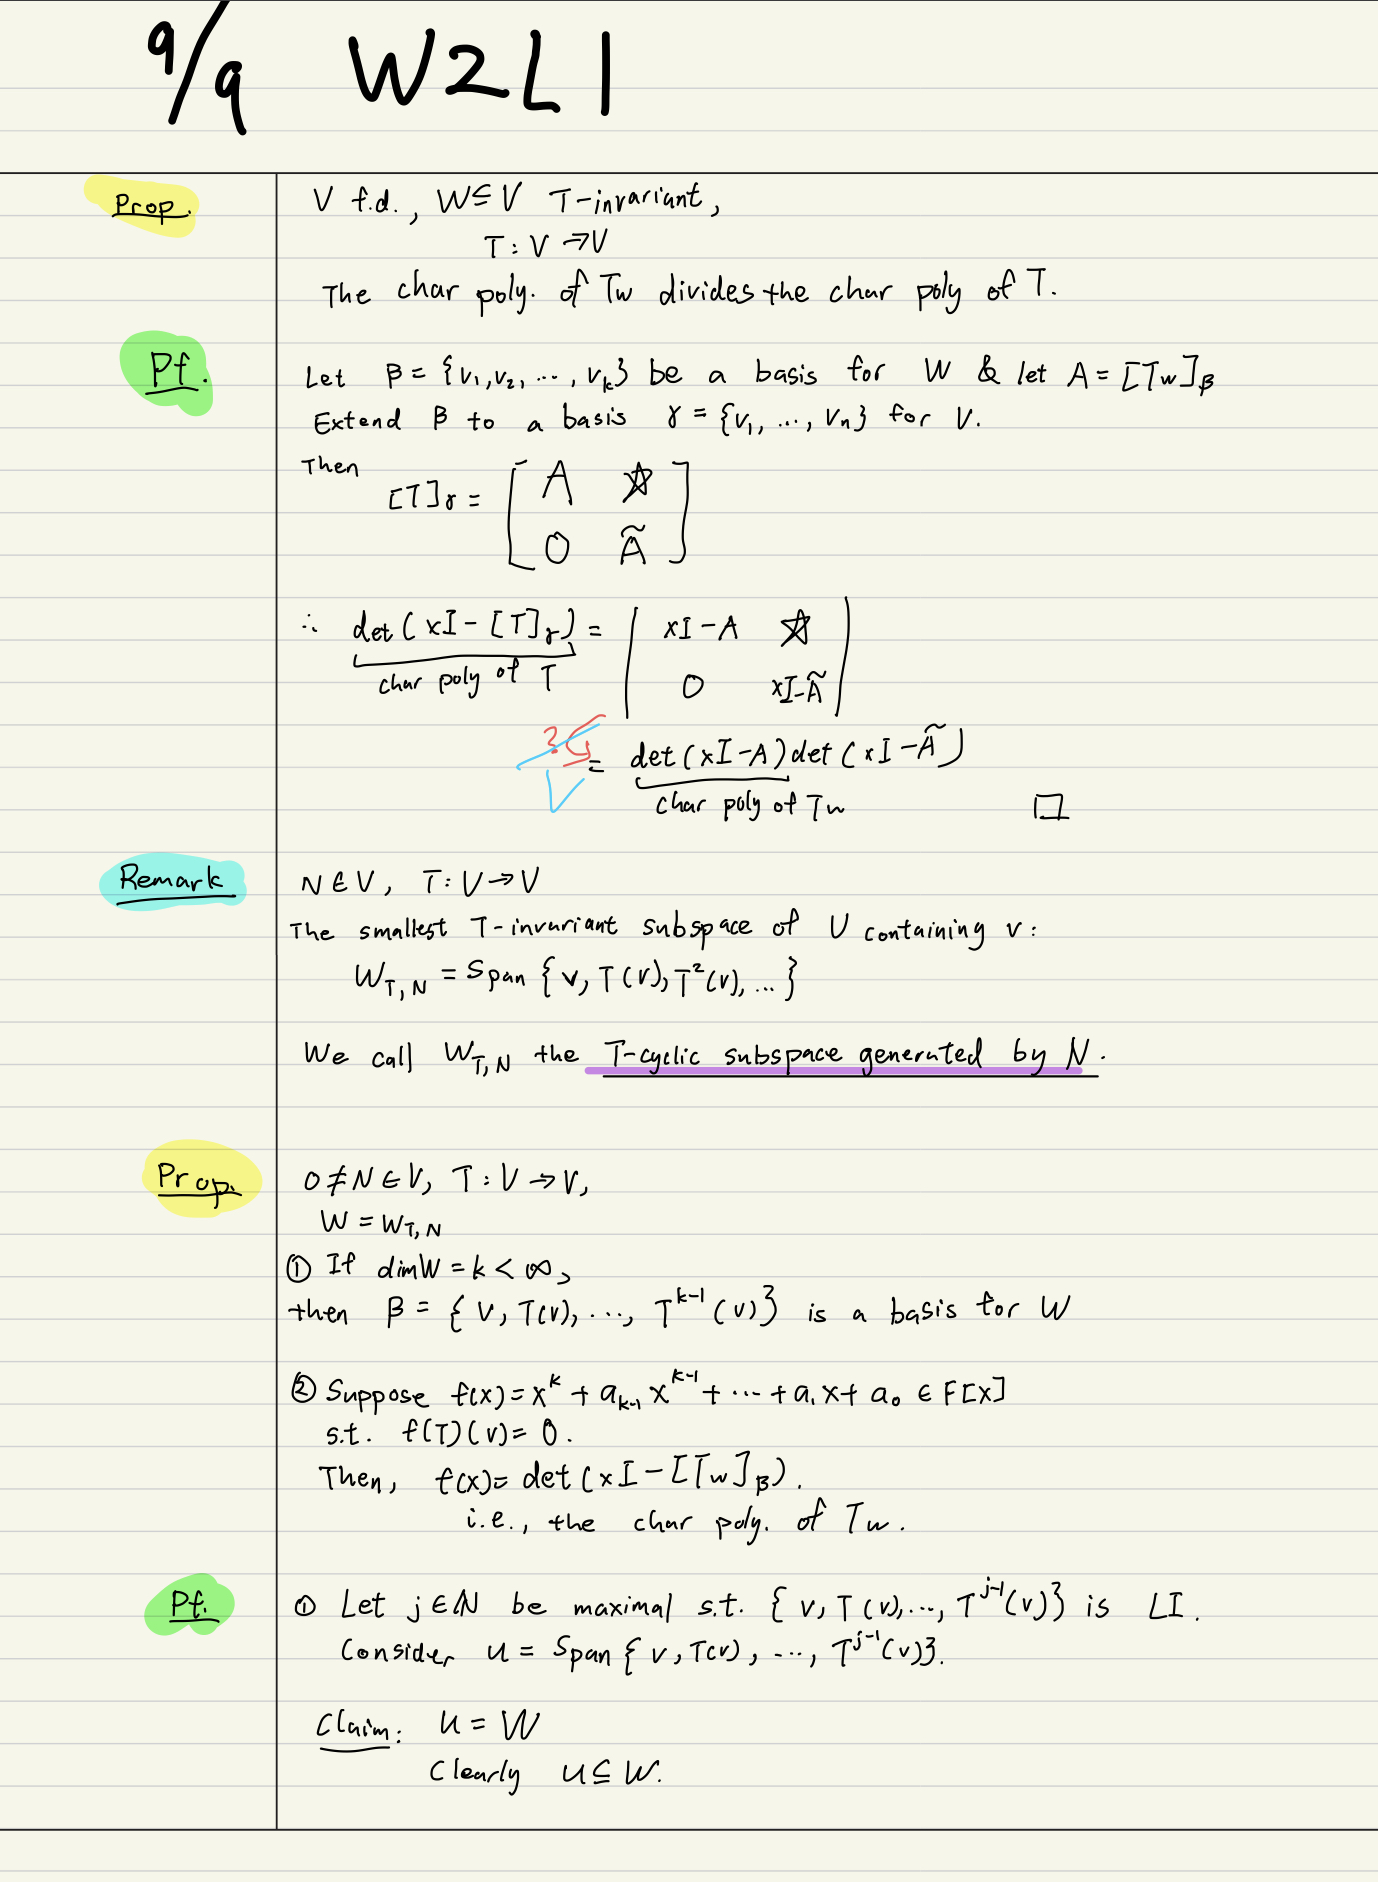 9/9 W2L1
Prop. V f.d., W⊆V T-invariant,
T: V→V
The char poly. of Tw divides the char poly of T.
Pf. Let β = {v₁,v₂, ..., vₖ} be a basis for W & let A = [Tw]β
Extend β to a basis γ = {v₁, ..., vₙ} for V.
Then
[T]γ = [ A ☆
0 Ã ]
∴ det(xI - [T]γ) = | xI-A ☆
char poly of T
0 xI-Ã |
? = det(xI-A)det(xI-Ã)
char poly of Tw □
Remark N∈V, T: V→V
The smallest T-invariant subspace of V containing v:
W_T,N = Span {v, T(v), T²(v), ...}
We call W_T,N the T-cyclic subspace generated by N.
Prop. 0≠N∈V, T: V→V,
W = W_T,N
① If dimW = k < ∞,
then β = {v, T(v), ..., Tᵏ⁻¹(v)} is a basis for W
② Suppose f(x) = xᵏ + aₖ₋₁xᵏ⁻¹ + ... + a₁x + a₀ ∈ F[x]
s.t. f(T)(v) = 0.
Then, f(x) = det(xI - [Tw]β).
i.e., the char poly. of Tw.
Pf. ① Let j∈ℕ be maximal s.t. {v, T(v), ..., Tʲ⁻¹(v)} is LI.
Consider U = Span{v, T(v), ..., Tʲ⁻¹(v)}.
Claim: U = W
Clearly U⊆W.